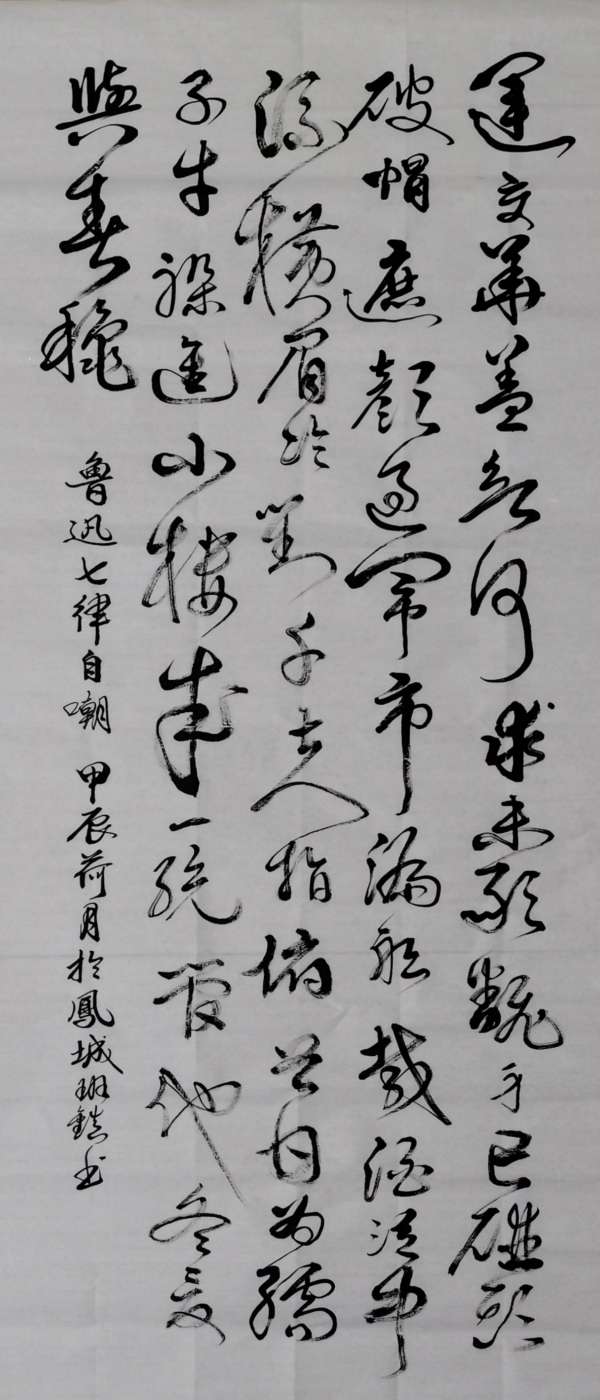 運交華蓋欲何求未敢翻身已碰頭
破帽遮顏過鬧市漏船載酒泛中
流橫眉冷對千夫指俯首甘為孺
子牛躲進小樓成一統管他冬夏
與春龝
魯迅七律自嘲 甲辰荷月於鳳城 书